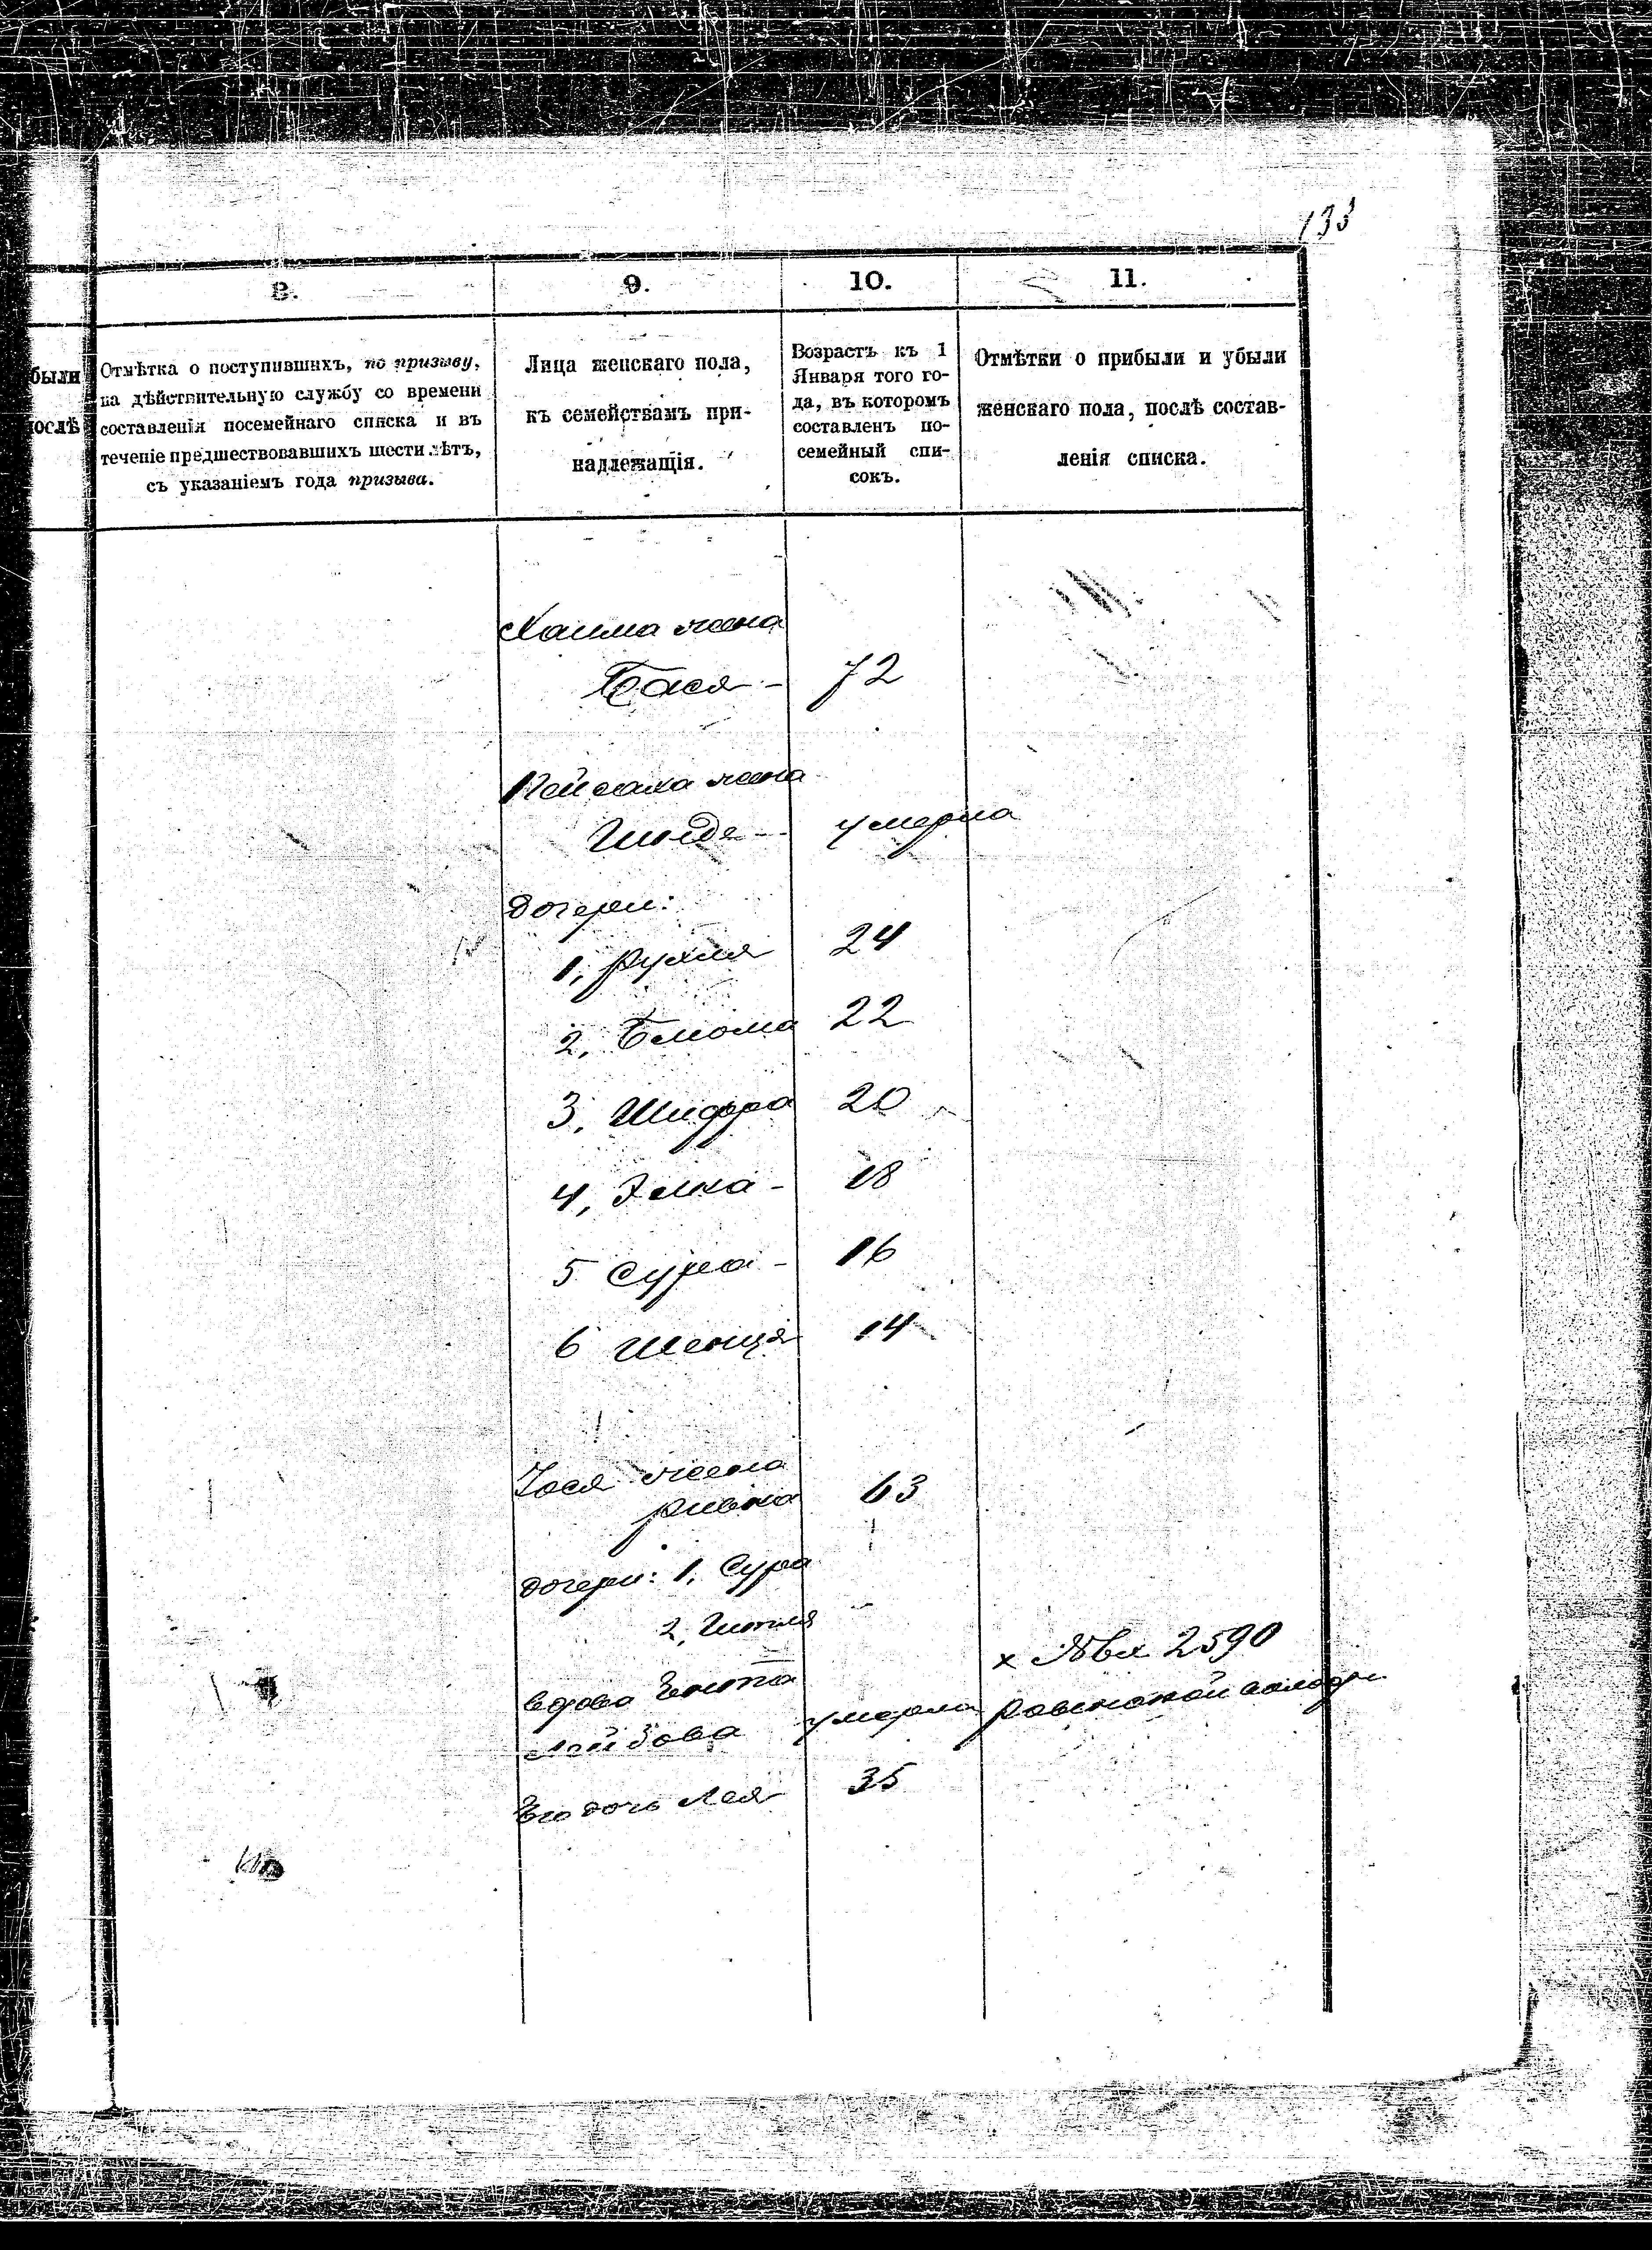 133
8.
9.
10.
11.
были
послѣ
Отмѣтка о поступившихъ, по призыву,
на дѣйствительную службу со времени
составленія посемейнаго списка и въ
теченіе предшествовавшихъ шести лѣтъ,
съ указаніемъ года призыва.
Лица женскаго пола,
къ семействамъ при-
надлежащія.
Возрастъ къ 1
Января того го-
да, въ которомъ
составленъ по-
семейный спи-
сокъ.
Отмѣтки о прибыли и убыли
женскаго пола, послѣ состав-
ленія списка.
Хаима жена
Бася - 72
Пейсаха жена
умерла
дочери:
1, Рухля 24
2, Блюма 22
3, Шифра 20
4, Элка - 18
5 Сура - 16
6 Шенця 14
Іося жена
Ривка 63
дочери: 1, Сура
2, Гитля
х 2590
вдова
Лейбова умерла
Его дочь Лея 35